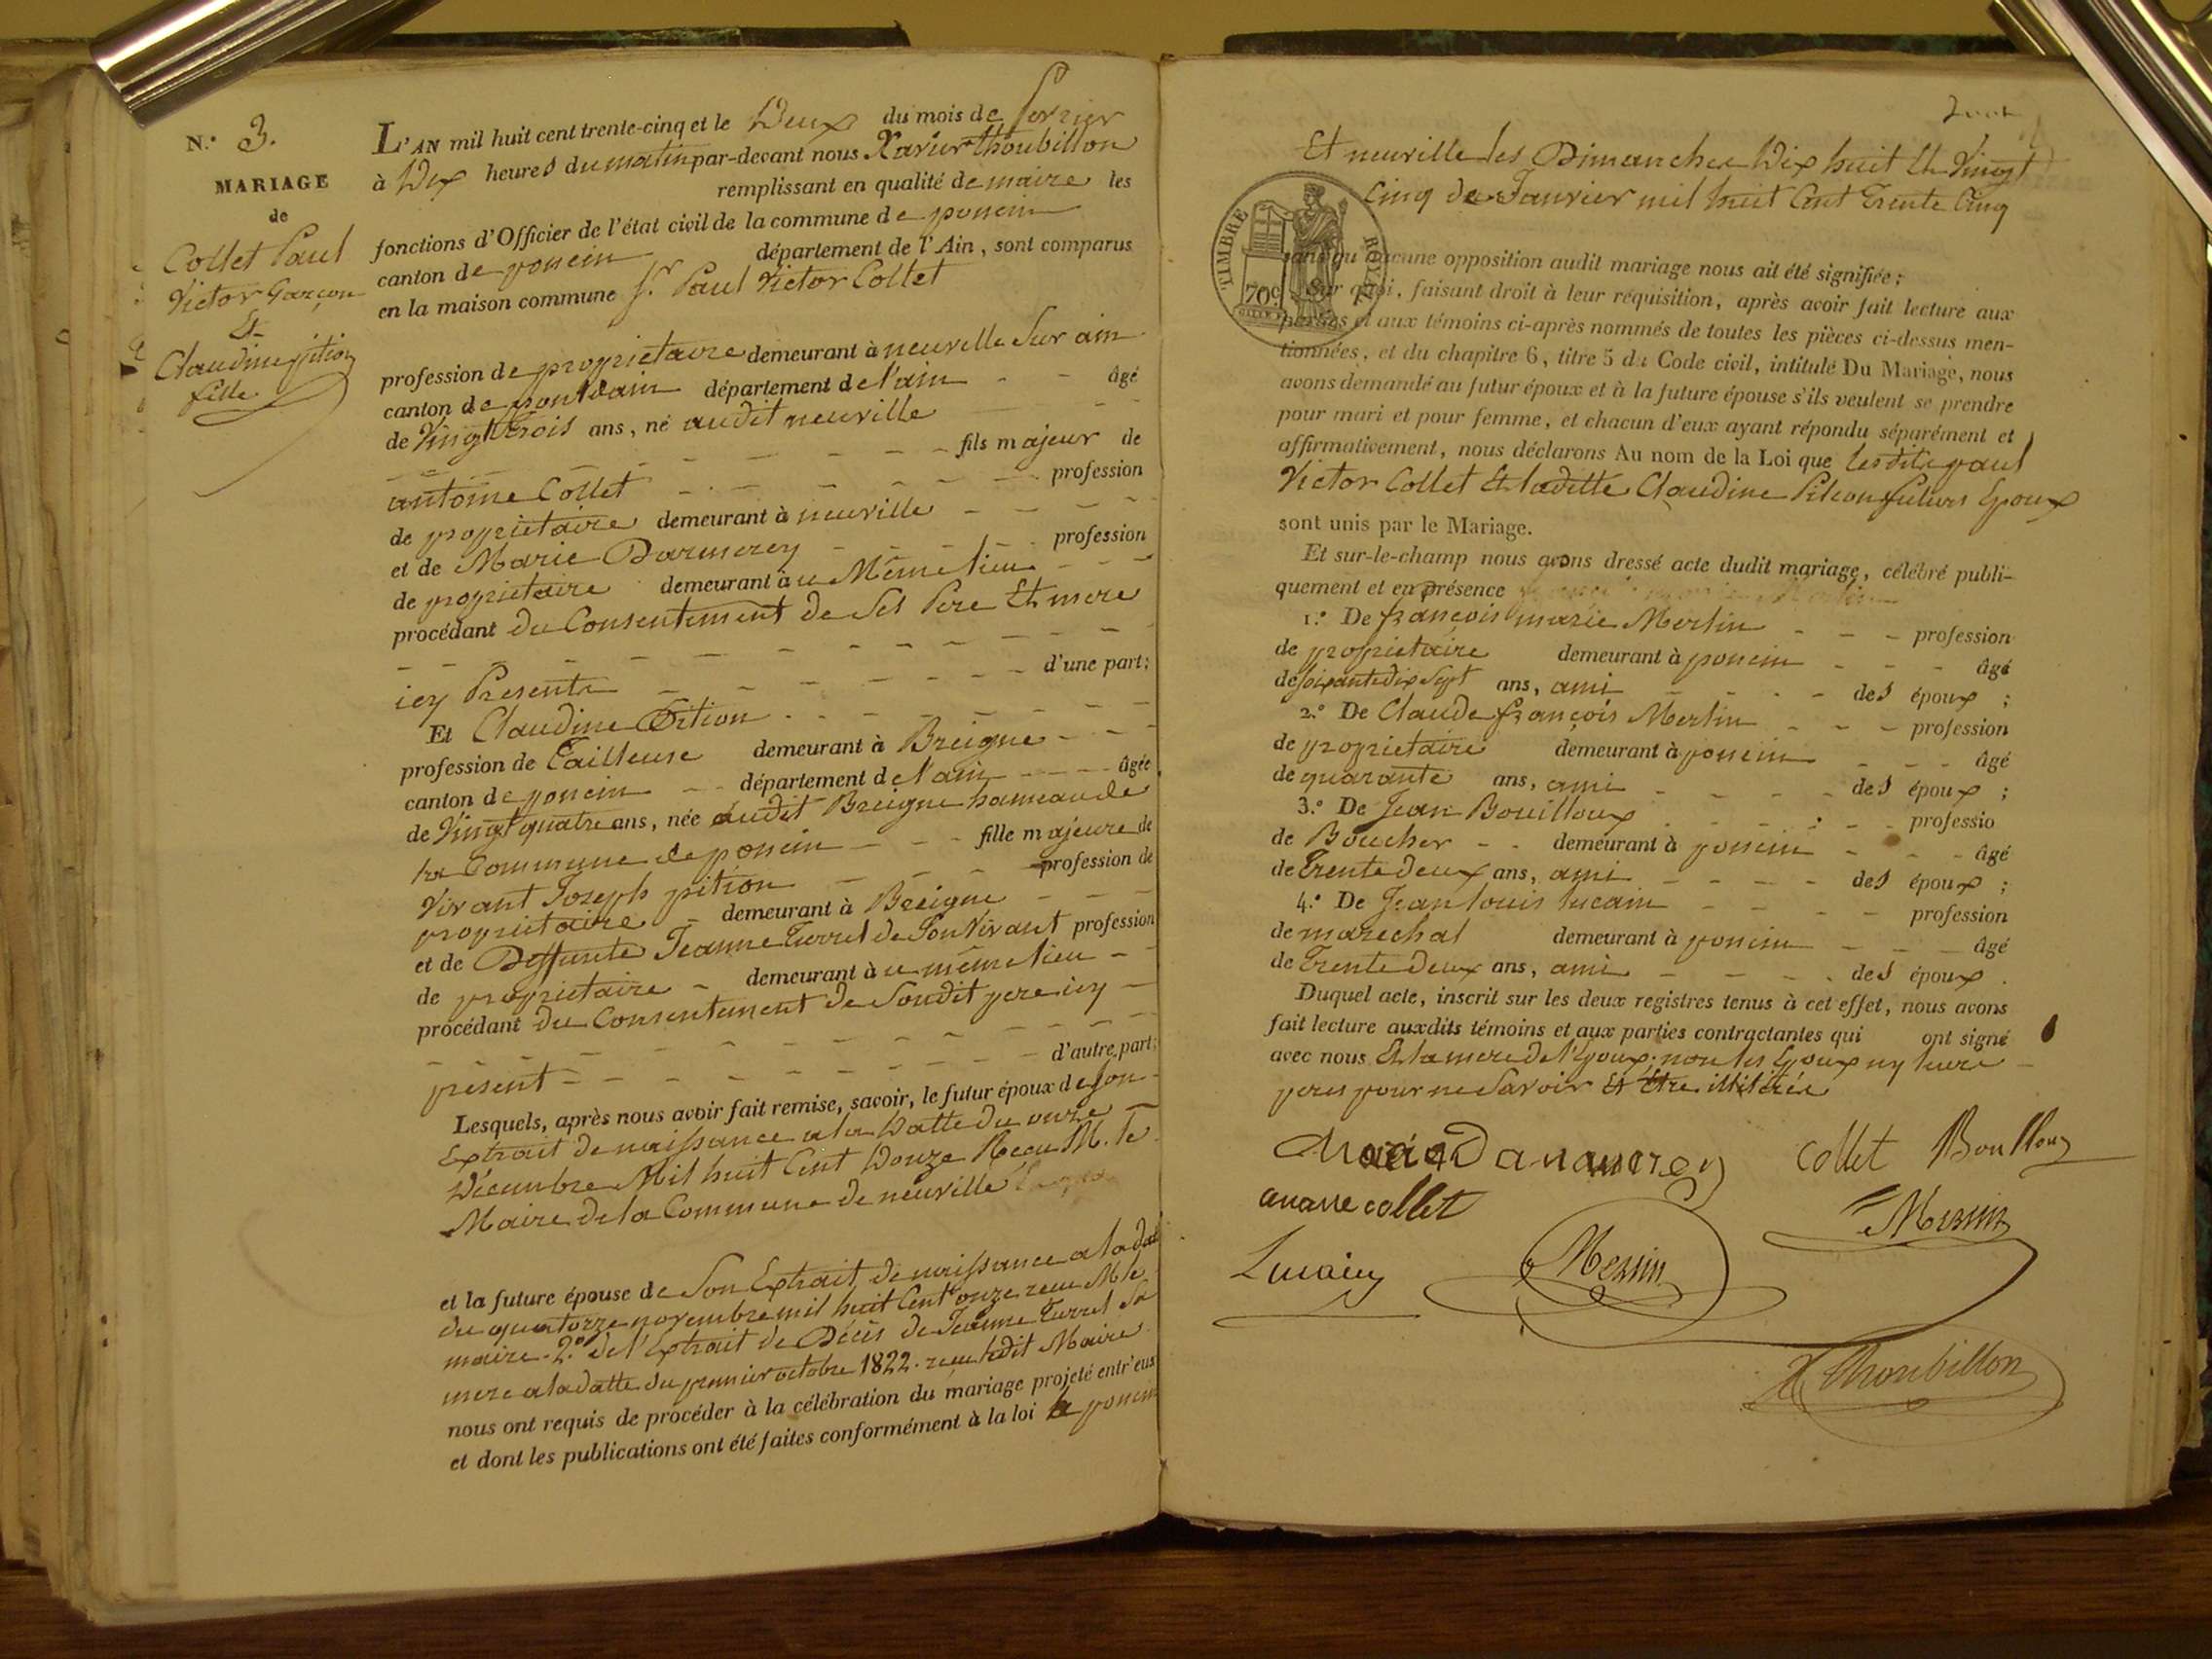 N.° 3.
MARIAGE
de
Collet Paul
Victor Garçon
Et
Claudine pition
fille
L'AN mil huit cent trente-cinq et le Deux du mois de fevrier
à Dix heures du matin par-devant nous Xavier Thoubillon
remplissant en qualité de maire les
fonctions d'Officier de l'état civil de la commune de poncin
canton de poncin département de l'Ain, sont comparus
en la maison commune Sr. Paul Victor Collet
profession de proprietaire demeurant à neuville Sur ain
canton de pontdain département de l'ain - - âgé
de Vingt trois ans, né audit neuville
fils majeur de
antoine Collet profession
de proprietaire demeurant à neuville
et de Marie Darmerey profession
de proprietaire demeurant à ce Même lieu
procédant du Consentement de Ses Pere Et mere
icy Presents d'une part;
Et Claudine Pition
profession de Tailleuse demeurant à Breigne
canton de poncin département de l'ain âgée
de Vingt quatre ans, née audit Breigne hameau de
la Commune de poncin fille majeure de
Vivant Joseph pition profession de
proprietaire demeurant à Breigne
et de Deffunte Jeanne Turrel de Son Vivant profession
de proprietaire demeurant à ce même lieu
procédant du Consentement de Sondit pere icy
présent d'autre part;
Lesquels, après nous avoir fait remise, savoir, le futur époux de Son
Extrait de naissance a la Datte du onze
Décembre Mil huit Cent Douze Recu M. le
Maire de la Commune de neuville
et la future épouse de Son Extrait de naissance a la dat
du quatorze novembre mil huit Cent onze recu M le
maire. 2.° de l'Extrait de Décès de Jeanne Turrel Sa
mere a la datte du premier octobre 1822. recu ledit Maire
nous ont requis de procéder à la célébration du mariage projeté entr'eux
et dont les publications ont été faites conformément à la loi a poncin
Et neuville les Dimanches Dix huit Et Vingt
Cinq de Janvier mil huit Cent Trente Cinq
TIMBRE ROYAL
70c
sans qu'aucune opposition audit mariage nous ait été signifiée;
Sur quoi, faisant droit à leur réquisition, après avoir fait lecture aux
parties et aux témoins ci-après nommés de toutes les pièces ci-dessus men-
tionnées, et du chapitre 6, titre 5 du Code civil, intitulé Du Mariage, nous
avons demandé au futur époux et à la future épouse s'ils veulent se prendre
pour mari et pour femme, et chacun d'eux ayant répondu séparément et
affirmativement, nous déclarons Au nom de la Loi que lesdits paul
Victor Collet Et laditte Claudine Pition futurs Epoux
sont unis par le Mariage.
Et sur-le-champ nous avons dressé acte dudit mariage, célébré publi-
quement et en présence
1.° De françois marie Merlin - - - profession
de proprietaire demeurant à poncin - - - âgé
de Soixante dix Sept ans, ami des époux;
2.° De Claude françois Merlin - - - profession
de proprietaire demeurant à poncin - - - âgé
de quarante ans, ami des époux;
3.° De Jean Bouilloux professio
de Boucher - - demeurant à poncin - - - âgé
de Trente deux ans, ami des époux;
4.° De Jean louis lucain profession
de marechal demeurant à poncin âgé
de Trente Deux ans, ami des époux.
Duquel acte, inscrit sur les deux registres tenus à cet effet, nous avons
fait lecture auxdits témoins et aux parties contractantes qui ont signé
avec nous Et la mere de l'Epoux, non les Epoux ny leurs
peres pour ne Savoir Et Etre illitérés
Collet Boulloux
collet
Lucain
Thoubillon